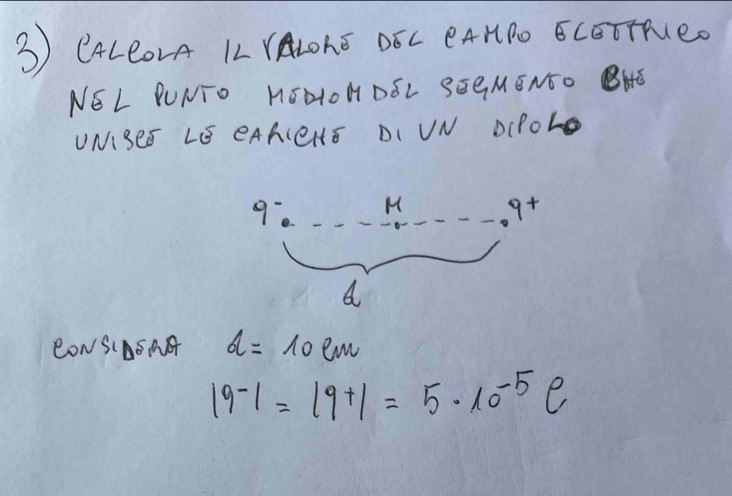 3) CALCOLA IL VALORE DEL CAMPO ELETTRICO
NEL PUNTO MEDIO M DEL SEGMENTO CHE
UNISCE LE CARICHE DI UN DIPOLO
q- M q+
d
CONSIDERA d = 10 cm
|q-| = |q+| = 5 · 10⁻⁵ C